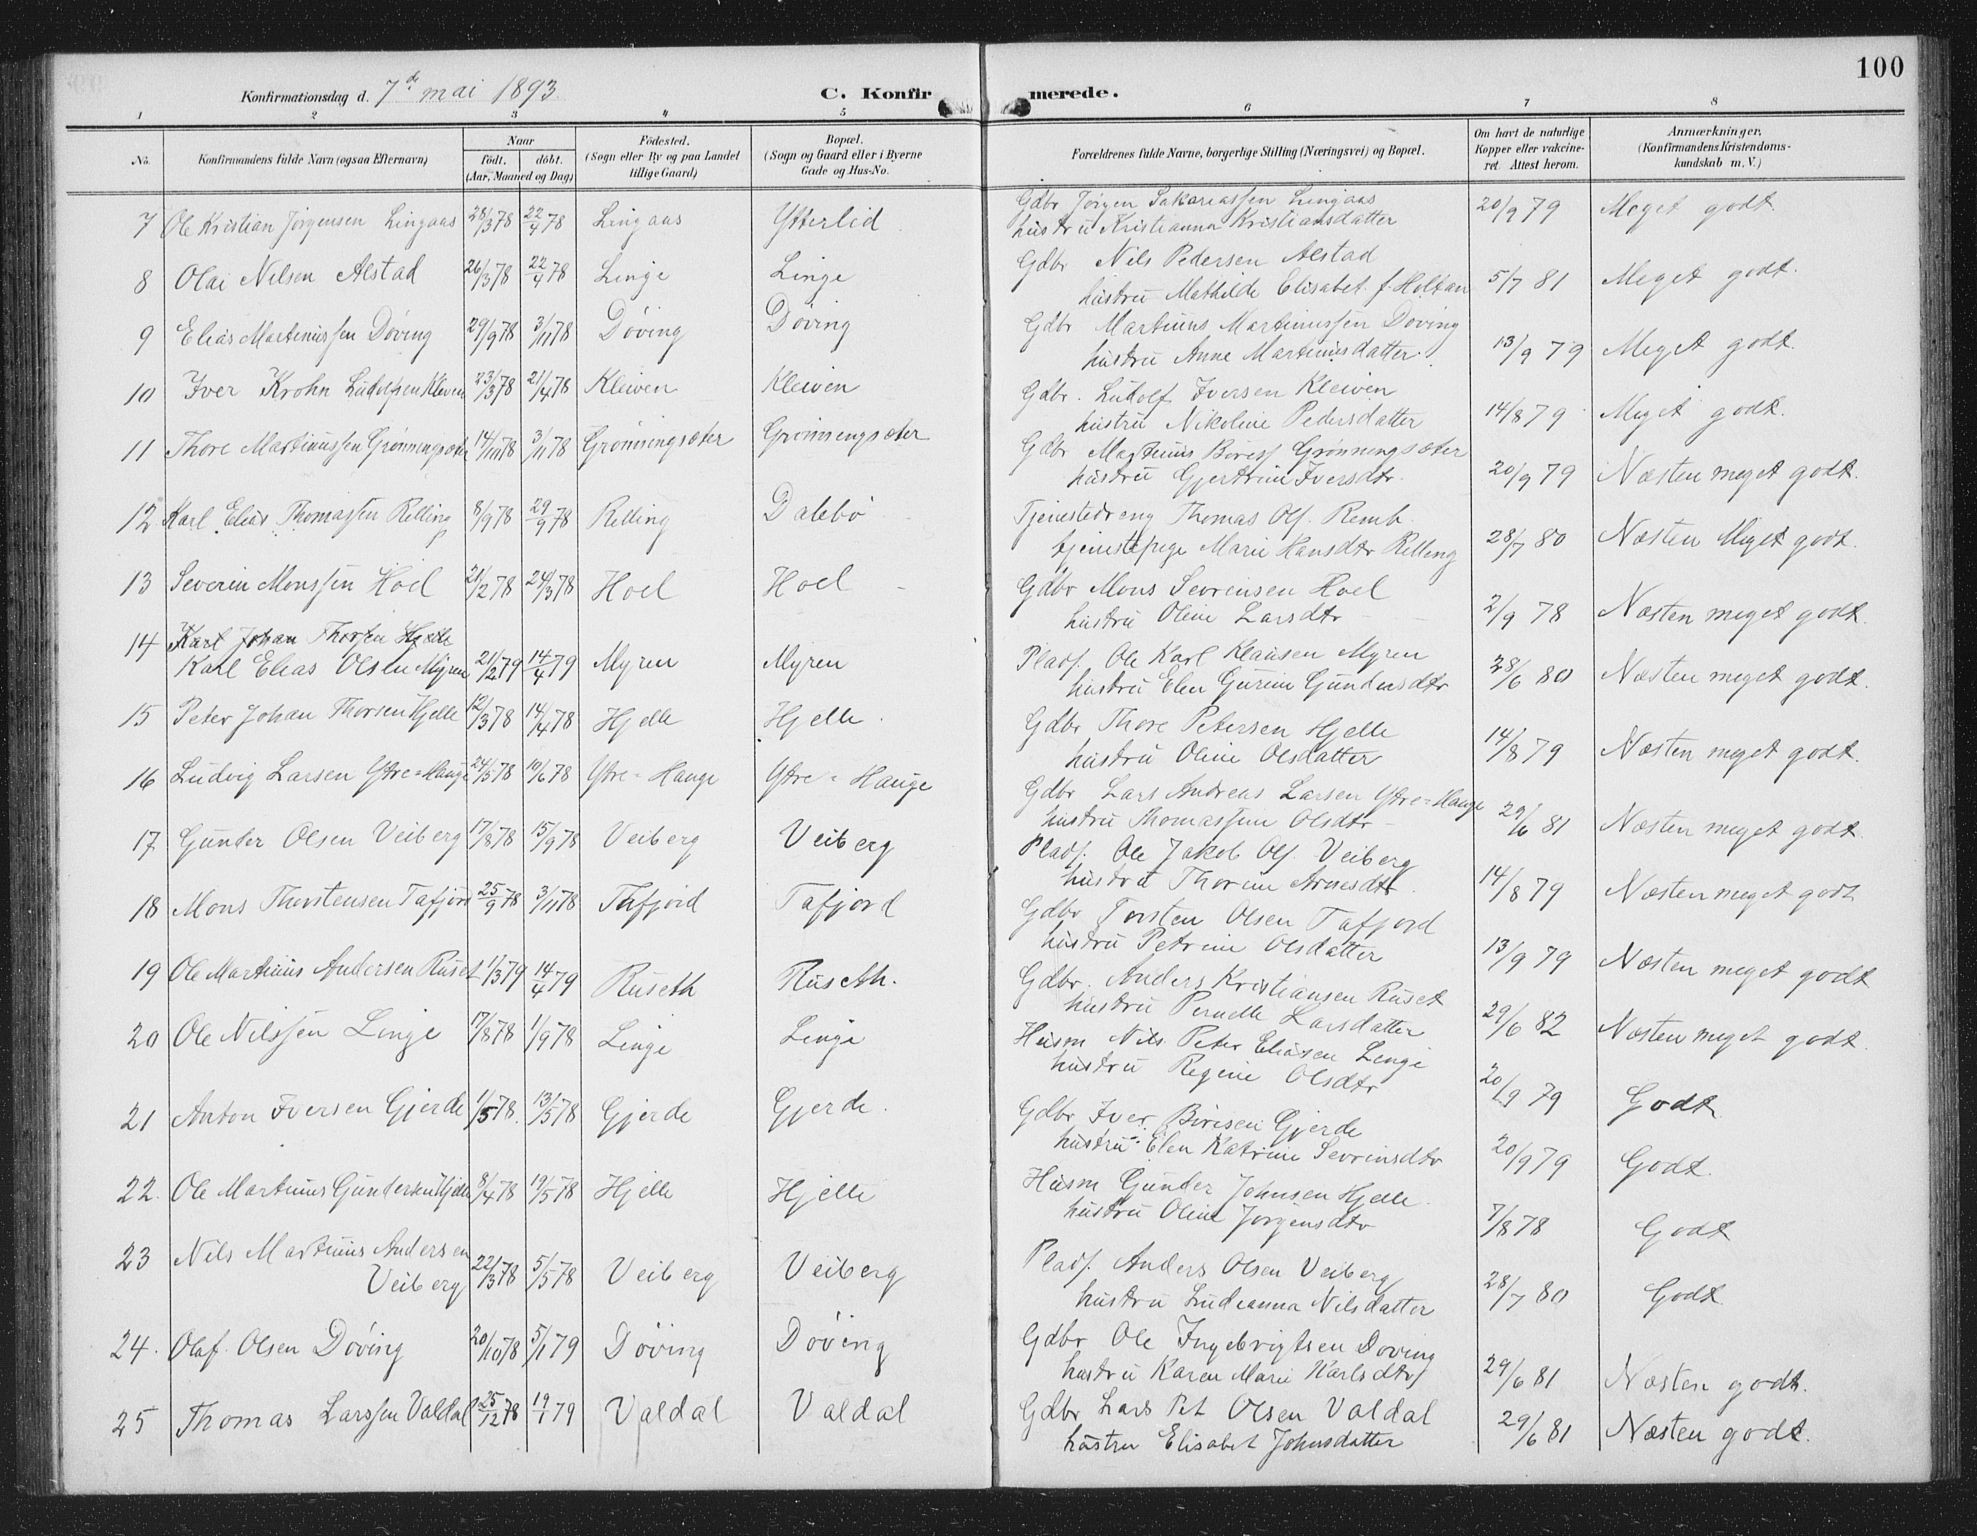 100
Konfirmationsdag d. 7de mai 1893
C. Konfirmerede.
1 2 3 4 5 6 7 8
No. Konfirmandens fulde Navn (ogsaa Efternavn) Naar født. døbt. (Aar, Maaned og Dag) Fødested. (Sogn eller By og paa Landet tillige Gaard) Bopæl. (Sogn og Gaard eller i Byerne Gade og Hus-No. Forældrenes fulde Navne, borgerlige Stilling (Næringsvei) og Bopæl. Om havt de naturlige Kopper eller vakcineret. Attest herom. Anmærkninger. (Konfirmandens Kristendomskundskab m. V.)
7 Ole Kristian Jørgensen Lingaas 28/3 78 22/4 78 Lingaas Ytterlid Gdbr Jørgen Sakariassen Lingaas 20/9 79 Meget godt.
hustru Kristianna Kristiansdatter
8 Olai Nilsen Alstad 26/3 78 22/4 78 Linge Linge Gdbr Nils Pedersen Alstad 5/7 81 Meget godt.
hustru Mathilde Elisabet f. Holtan
9 Elias Martinussen Döving 29/9 78 3/11 78 Döving Döving Gdbr Martinus Martinussen Döving 13/9 79 Meget godt.
hustru Anne Martinusdatter.
10 Iver Krohn Ludolfsen Kleven 23/3 78 21/4 78 Kleiven Kleiven Gdbr. Ludolf Iversen Kleiven 14/8 79 Meget godt.
hustru Nikoline Pedersdatter
11 Thore Martinussen Grønningsæter 14/10 78 3/11 78 Grønningsæter Grønningsæter Gdbr Martinus Böress Grønningsæter 20/9 79 Næsten meget godt.
hustru Gjertrine Iversdtr.
12 Karl Elias Thomassen Relling 8/9 78 29/9 78 Relling Dalebö Tjenestedreng Thomas Ols. Remb 28/7 80 Næsten Meget godt.
tjenestepige Marie Hansdtr Relling
13 Severin Monssen Hoel 21/2 78 24/3 78 Hoel Hoel Gdbr Mons Sevrensen Hoel 2/9 78 Næsten meget godt.
hustru Oline Larsdtr
14 Karl Johan Thorsen Hjelle
Karl Elias Olsen Myren 21/2 79 14/4 79 Myren Myren Plads. Ole Karl Klausen Myren 28/6 80 Næsten meget godt.
hustru Elen Gurine Gundersdtr
15 Peter Johan Thorsen Hjelle 12/3 78 14/4 78 Hjelle Hjelle. Gdbr Thore Petersen Hjelle 14/8 79 Næsten meget godt.
hustru Oline Olsdatter
16 Ludvig Larsen Ytre-Hauge 24/5 78 10/6 78 Ytre-Hauge Ytre-Hauge Gdbr Lars Andreas Larsen Ytre-Hauge 29/6 81 Næsten meget godt.
hustru Olsdtr
17 Gunder Olsen Veiberg 17/8 78 15/9 78 Veiberg Veiberg Plads. Ole Jakob Ols. Veiberg 14/8 79 Næsten meget godt
hustru Thorine Arnesdtr.
18 Mons Thorstensen Tafjord 25/9 78 3/11 78 Tafjord Tafjord Gdbr Torsten Olsen Tafjord 13/9 79 Næsten meget godt
hustru Petrine Olsdatter
19 Ole Martinus Andersen Ruset 1/3 79 14/4 79 Ruseth Ruseth. Gdbr. Anders Kristiansen Ruset 29/6 82 Næsten meget godt.
hustru Pernelle Larsdatter
20 Ole Nilssen Linge 17/8 78 1/9 78 Linge Linge Husm Nils Peter Eliasen Linge 20/9 79 Godt
hustru Regine Olsdtr
21 Anton Iversen Gjerde 1/5 78. 13/5 78 Gjerde Gjerde. Gdbr Iver Börisen Gjerde 20/9 79 Godt.
hustru Elen Katrine Sevrinsdtr
22. Ole Martinus Gundersen Hjelle 8/4 78 19/5 78 Hjelle Hjelle Husm Gunder Johnsen Hjelle. 7/8 78 Godt
hustru Oline Jørgensdtr
23 Nils Martinus Andersen
Veiberg 22/3 78 5/5 78 Veiberg Veiberg Plads. Anders Olsen Veiberg 28/7 80 Godt
hustru Ludeanna Nilsdatter
24. Olaf Olsen Döving 20/10 78 5/1 79 Döving Döving Gdbr Ole Ingebrigtsen Döving 29/6 81 Næsten godt.
hustru Karen Marie Karlsdtr
25 Thomas Larssen Valdal 25/12 78 19/1 79 Valdal Valdal Gdbr Lars Pet Olsen Valdal 29/6 81 Næsten godt.
hustru Elisabet Johnsdatter